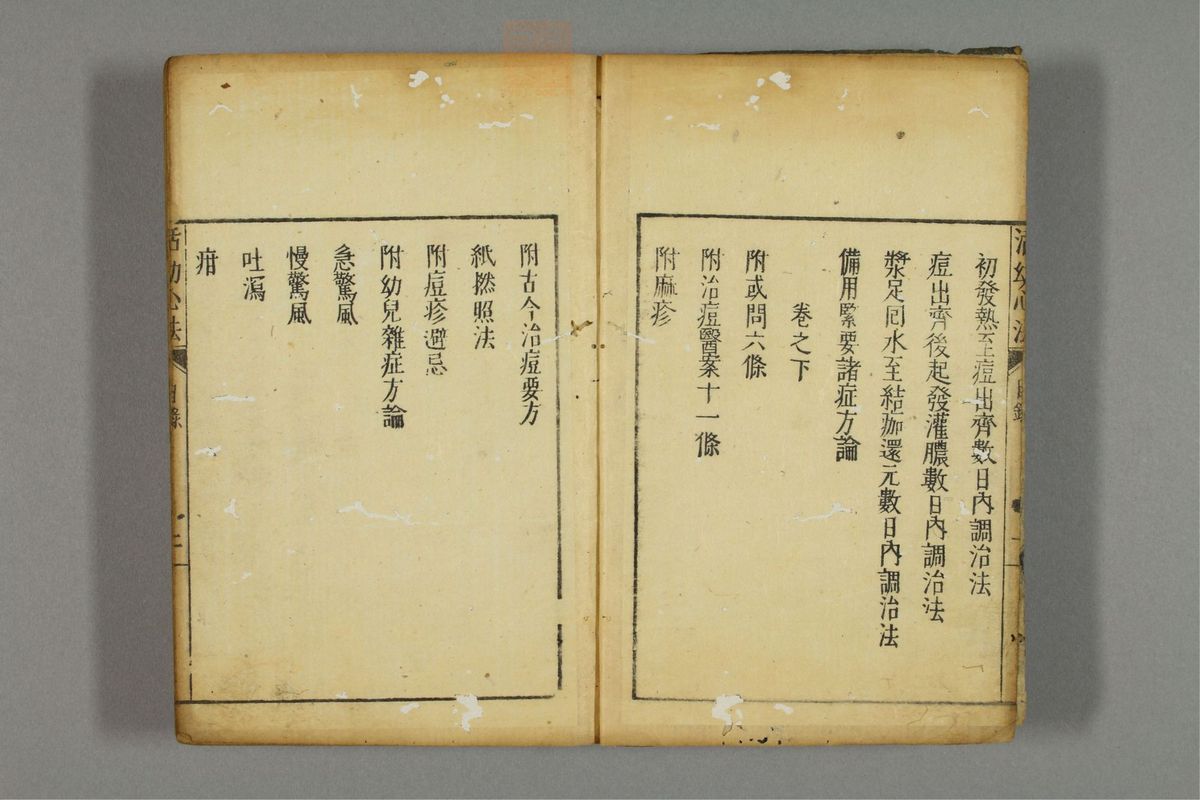 活幼心法
目錄
初發熱至痘出齊數日內調治法
痘出齊後起發灌膿數日內調治法
漿足囘水至結痂還元數日內調治法
備用緊要諸症方論
卷之下
附或問六條
附治痘醫案十一條
附麻疹
附古今治痘要方
紙撚照法
附痘疹避忌
附幼兒雜症方論
急驚風
慢驚風
吐瀉
疳
活幼心法
目錄
二